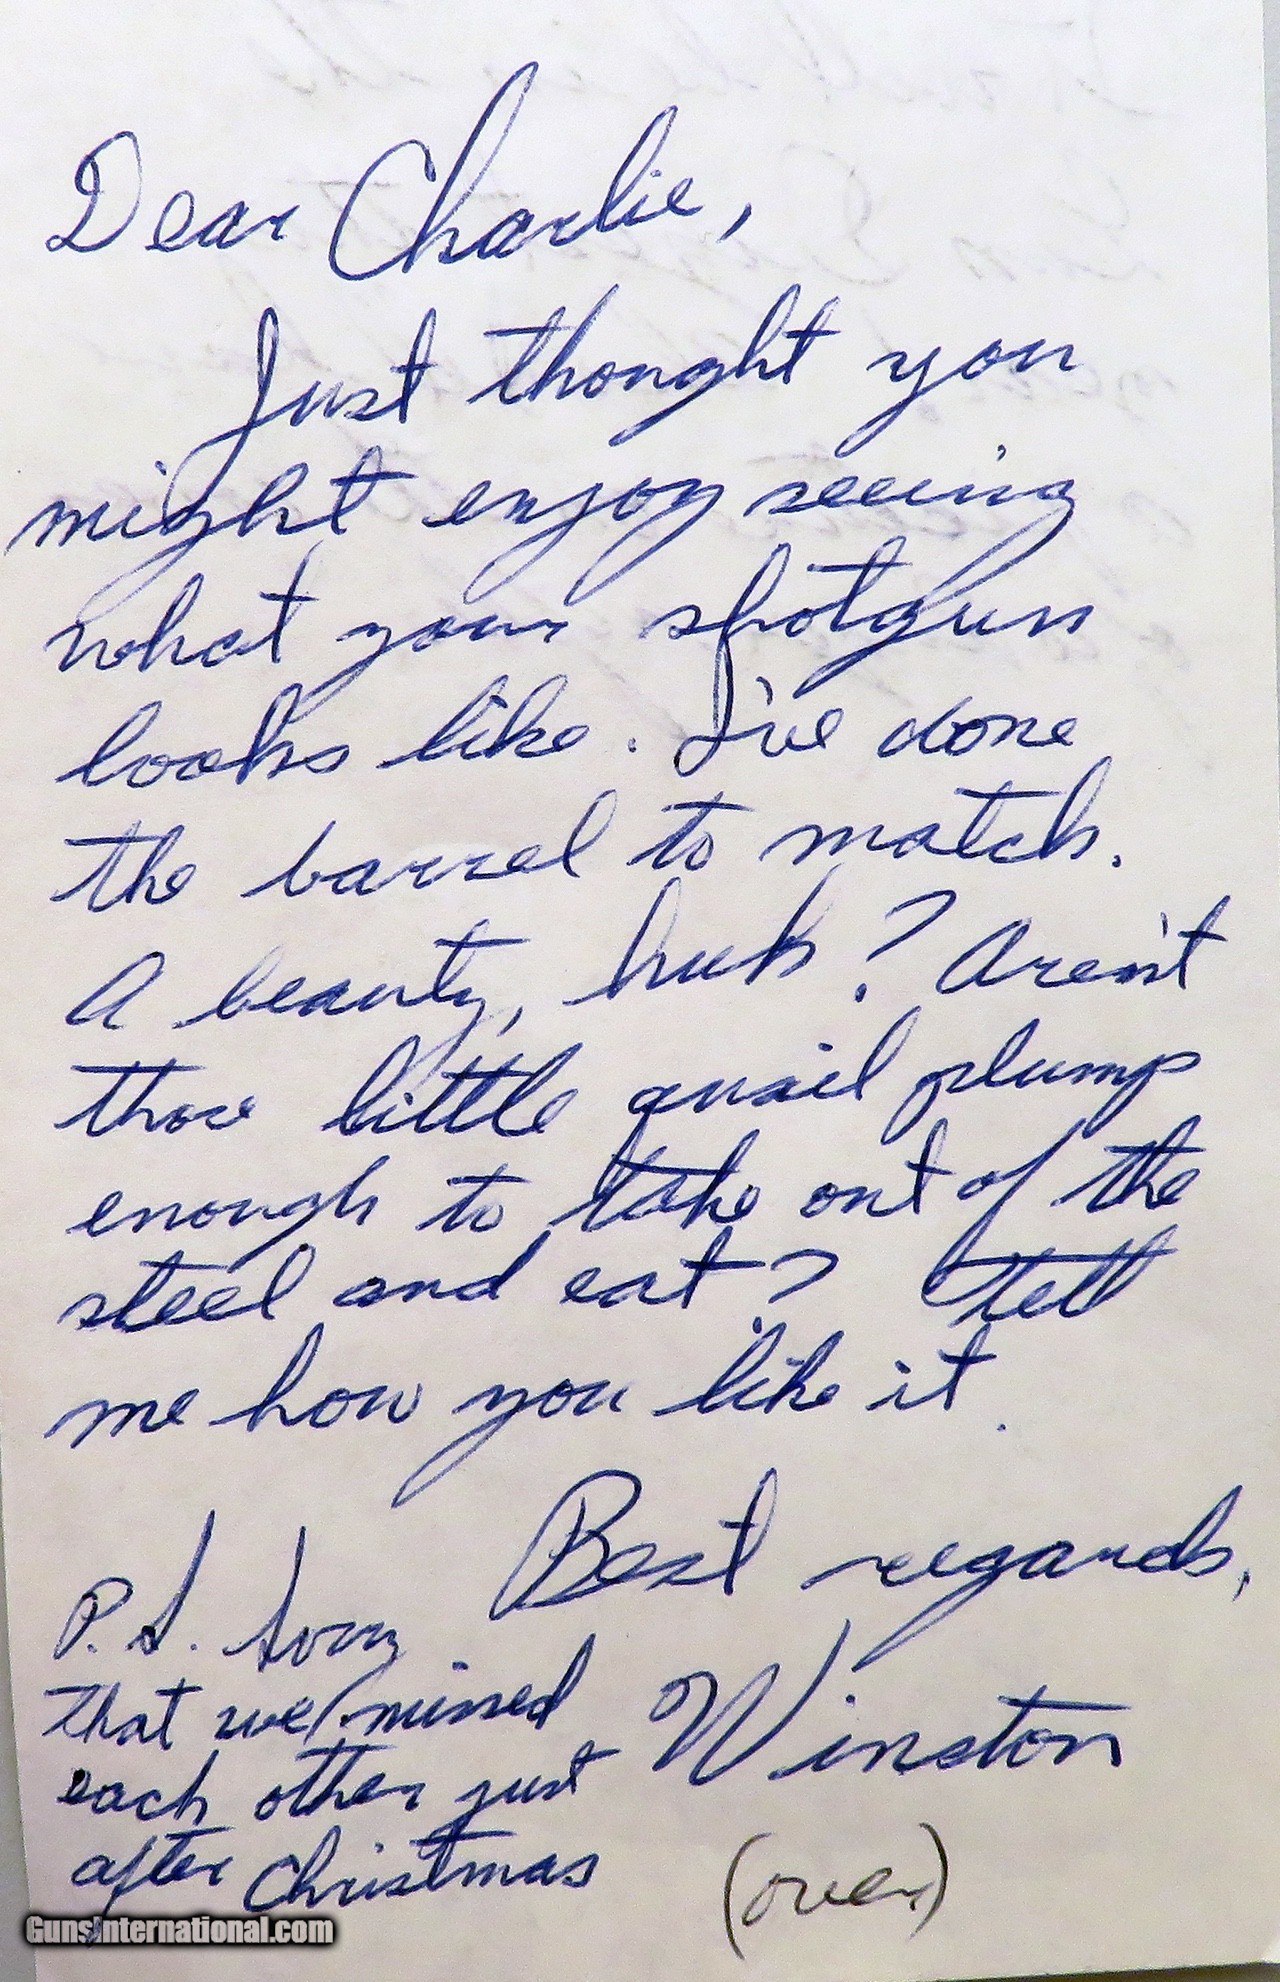 Dear Charlie,
Just thought you
might enjoy seeing
what your shotgun
looks like. I've done
the barrel to match.
A beauty, huh? Aren't
those little quail plump
enough to take out of the
steel and eat? Tell
me how you like it.
Best regards,
Winston
P.S. Sorry
that we missed
each other just
after Christmas
(over)
GunsInternational.com